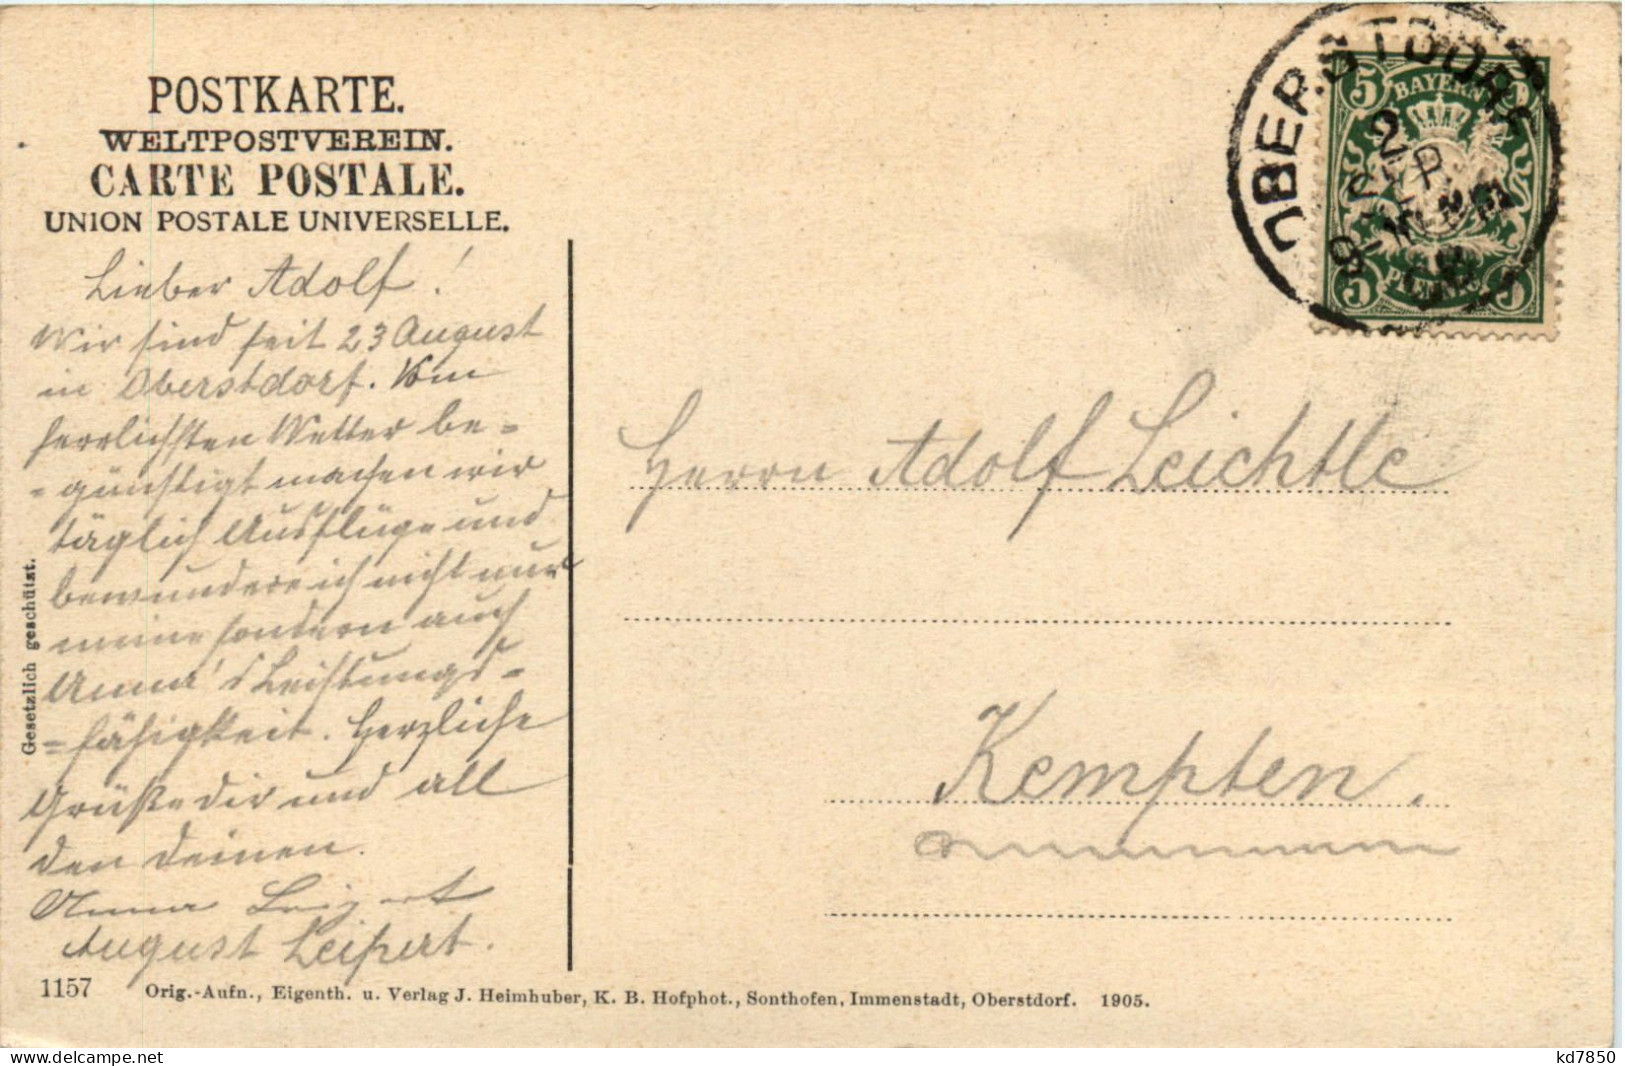 POSTKARTE.
WELTPOSTVEREIN.
CARTE POSTALE.
UNION POSTALE UNIVERSELLE.
Lieber Adolf!
Wir sind seit 23 August
in Oberstdorf. Vom
herrlichsten Wetter be=
=günstigt machen wir
täglich Ausflüge und
bewundere ich nicht nur
meine sondern auch
Anna's Leistungs=
=fähigkeit. Herzliche
Grüße dir und all
den Deinen.
Anna Leipert
August Leipert.
Gesetzlich geschützt.
OBERSTDORF
2
SEP
BAYERN
5 5
PFENNIG
5 5
Herrn Adolf Leichtle
Kempten.
1157 Orig.-Aufn., Eigenth. u. Verlag J. Heimhuber, K. B. Hofphot., Sonthofen, Immenstadt, Oberstdorf. 1905.
kd7850
www.delcampe.net